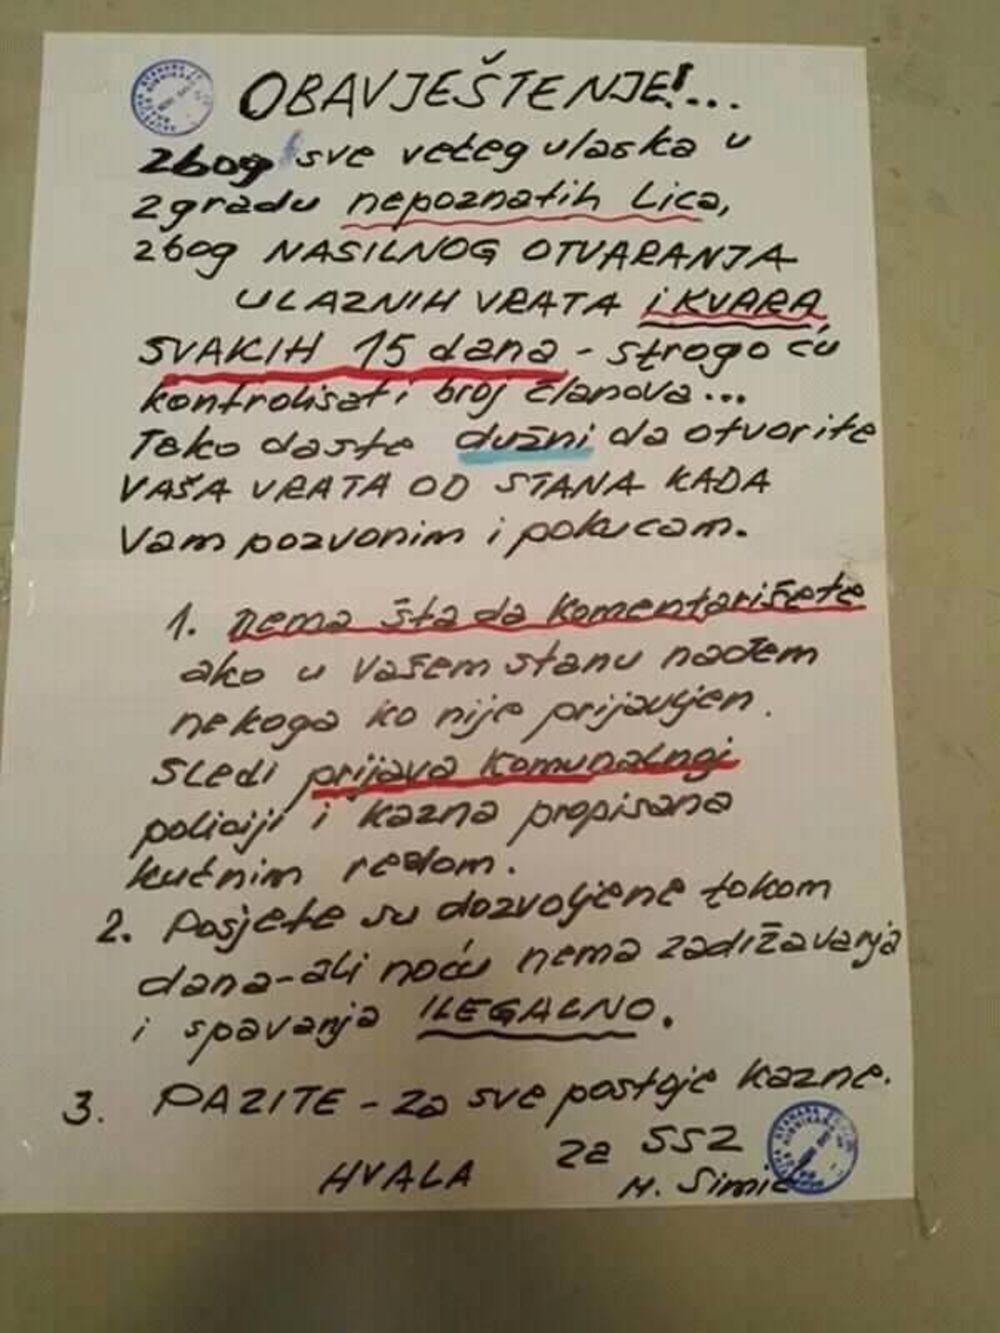 OBAVJEŠTENJE!...
zbog sve većeg ulaska u
zgradu nepoznatih Lica,
zbog NASILNOG OTVARANJA
ULAZNIH VRATA i KVARA,
SVAKIH 15 dana - strogo ću
kontrolisati broj članova...
Tako daste dužni da otvorite
VAŠA VRATA OD STANA KADA
Vam pozvonim i pokucam.
1. nema šta da komentarišete
ako u Vašem stanu nađem
nekoga ko nije prijavljen.
Sledi prijava komunalnoj
policiji i kazna propisana
kućnim redom.
2. Posjete su dozvoljene tokom
dana-ali noću nema zadržavanja
i spavanja ILEGALNO.
3. PAZITE - za sve postoje kazne.
za SSZ
HVALA M. Simić